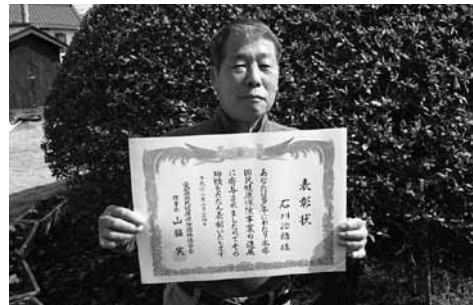 表彰状
石川治雄様
あなたは多年にわたり本県
国民健康保険事業の進展
に寄与されましたのでその
功績をたたえ表彰いたします
理事長 山脇 実